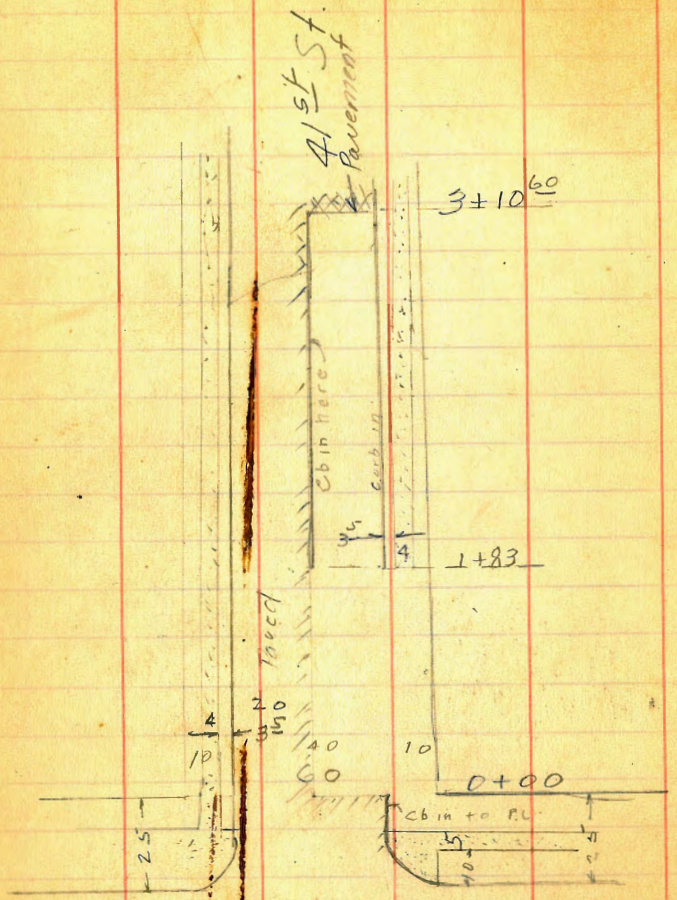 41st St.
Pavement
3+10 60
Cb in here
Curb in
3 5
4
1+83
Paved
20
4
3 5
10
40
10
60
0+00
Cb in to P.L.
25
5
10
25